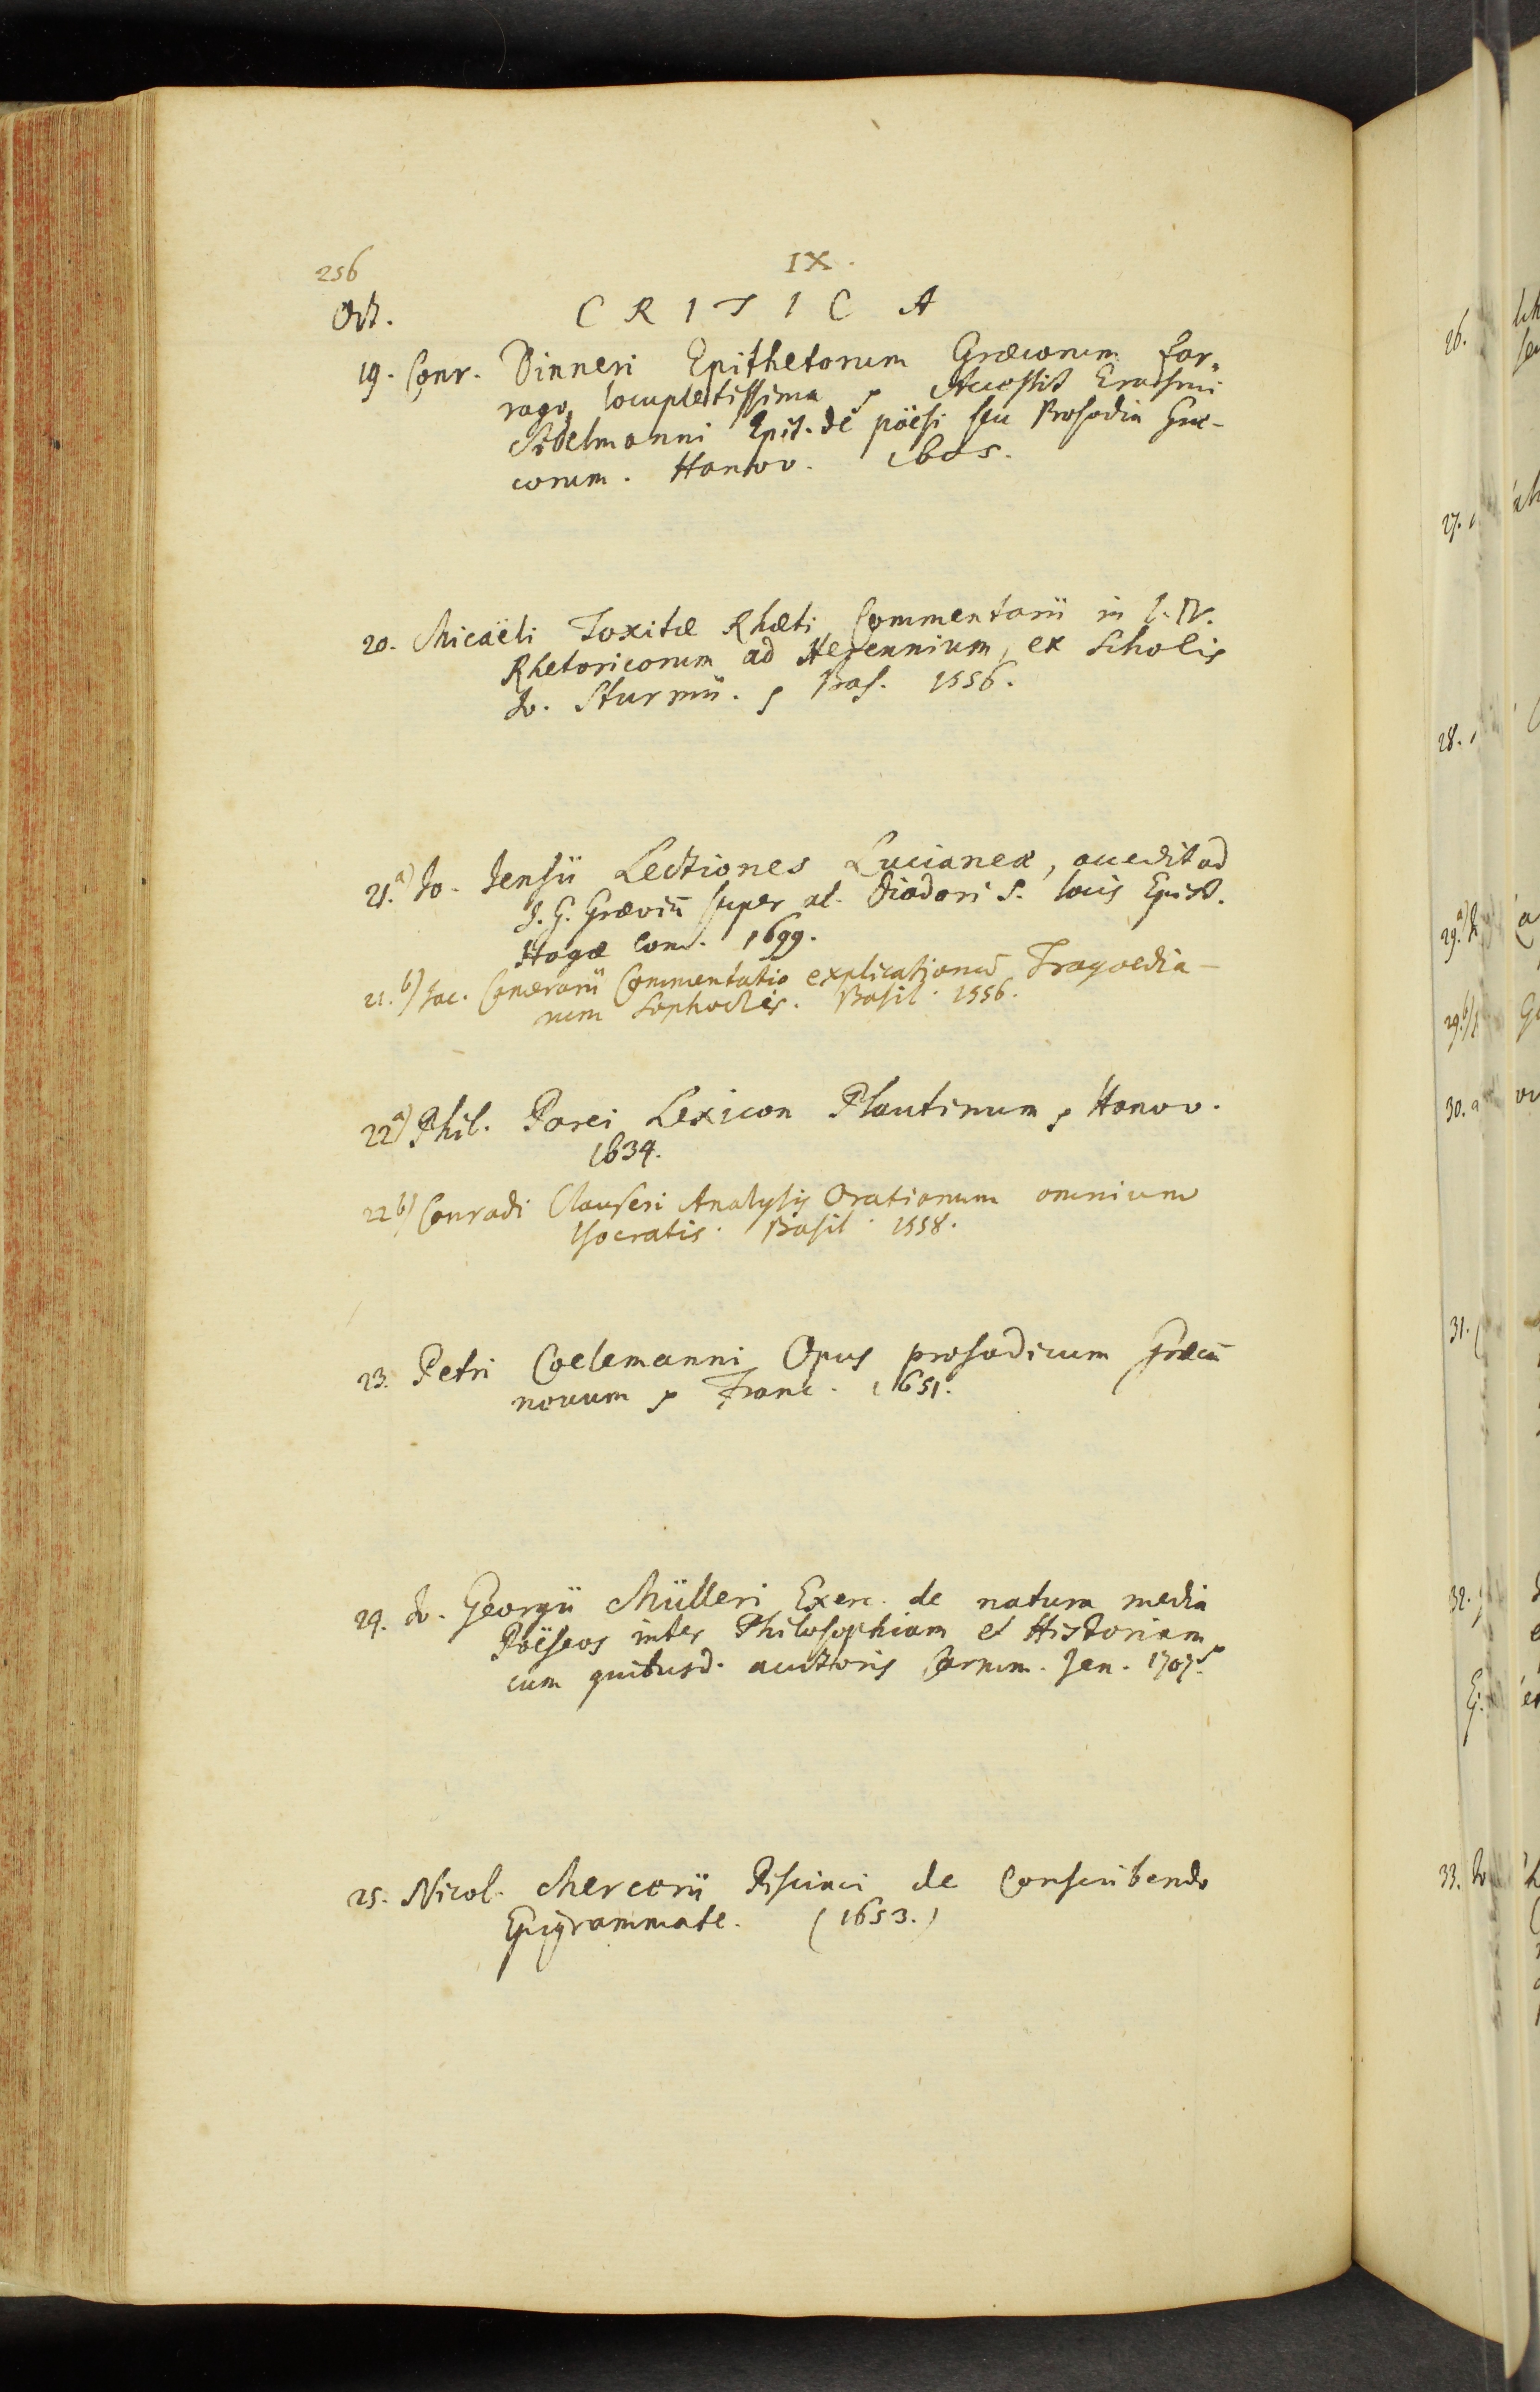 256
IX.
Oct.
CRITICA
19. Conr. Dinneri Epithetorum Græcorum far„
rago locupletissima, Accessit Erasmi
Sidelmanni Epit. de pöesi seu Prosodia Græ-
corum. Hanov. 1605.
20. Micaëli Toxitæ Rhæti Commentarii in l. IV.
Rhetoricorum ad Herennium, ex Scholis
Jo. Sturmii. Bas. 1556.
21.a) Jo. Jensii Lectiones Lucianeæ, accedit ad
J. G. Græviū super al. Diodori S. locis Epist.
Hagæ Com. 1699.
21.b) Joac. Camerarii Commentatio explicationum Tragoedia-
rum Sophoclis. Basil. 1556.
22a) Phil. Parei Lexicon Plautinum, Hanov.
1634.
22b) Conradi Clauseri Analysis Orationum omnium
Isocratis. Basil. 1558.
23. Petri Coelemanni Opus prosodicum Græcū
novum, Franc. 1651.
24. Jo. Georgii Mülleri Exerc. de natura media
Poëseos inter Philosophiam et Historiam
cum quibusd. auctoris Carmm. Jen. 1707.
25. Nicol. Mercerii Pisciaci de Conscribendo
Epigrammate. (1653.)
26.
27.
28.
29.a)
29.b)
30.
31.
32.
33. Jo